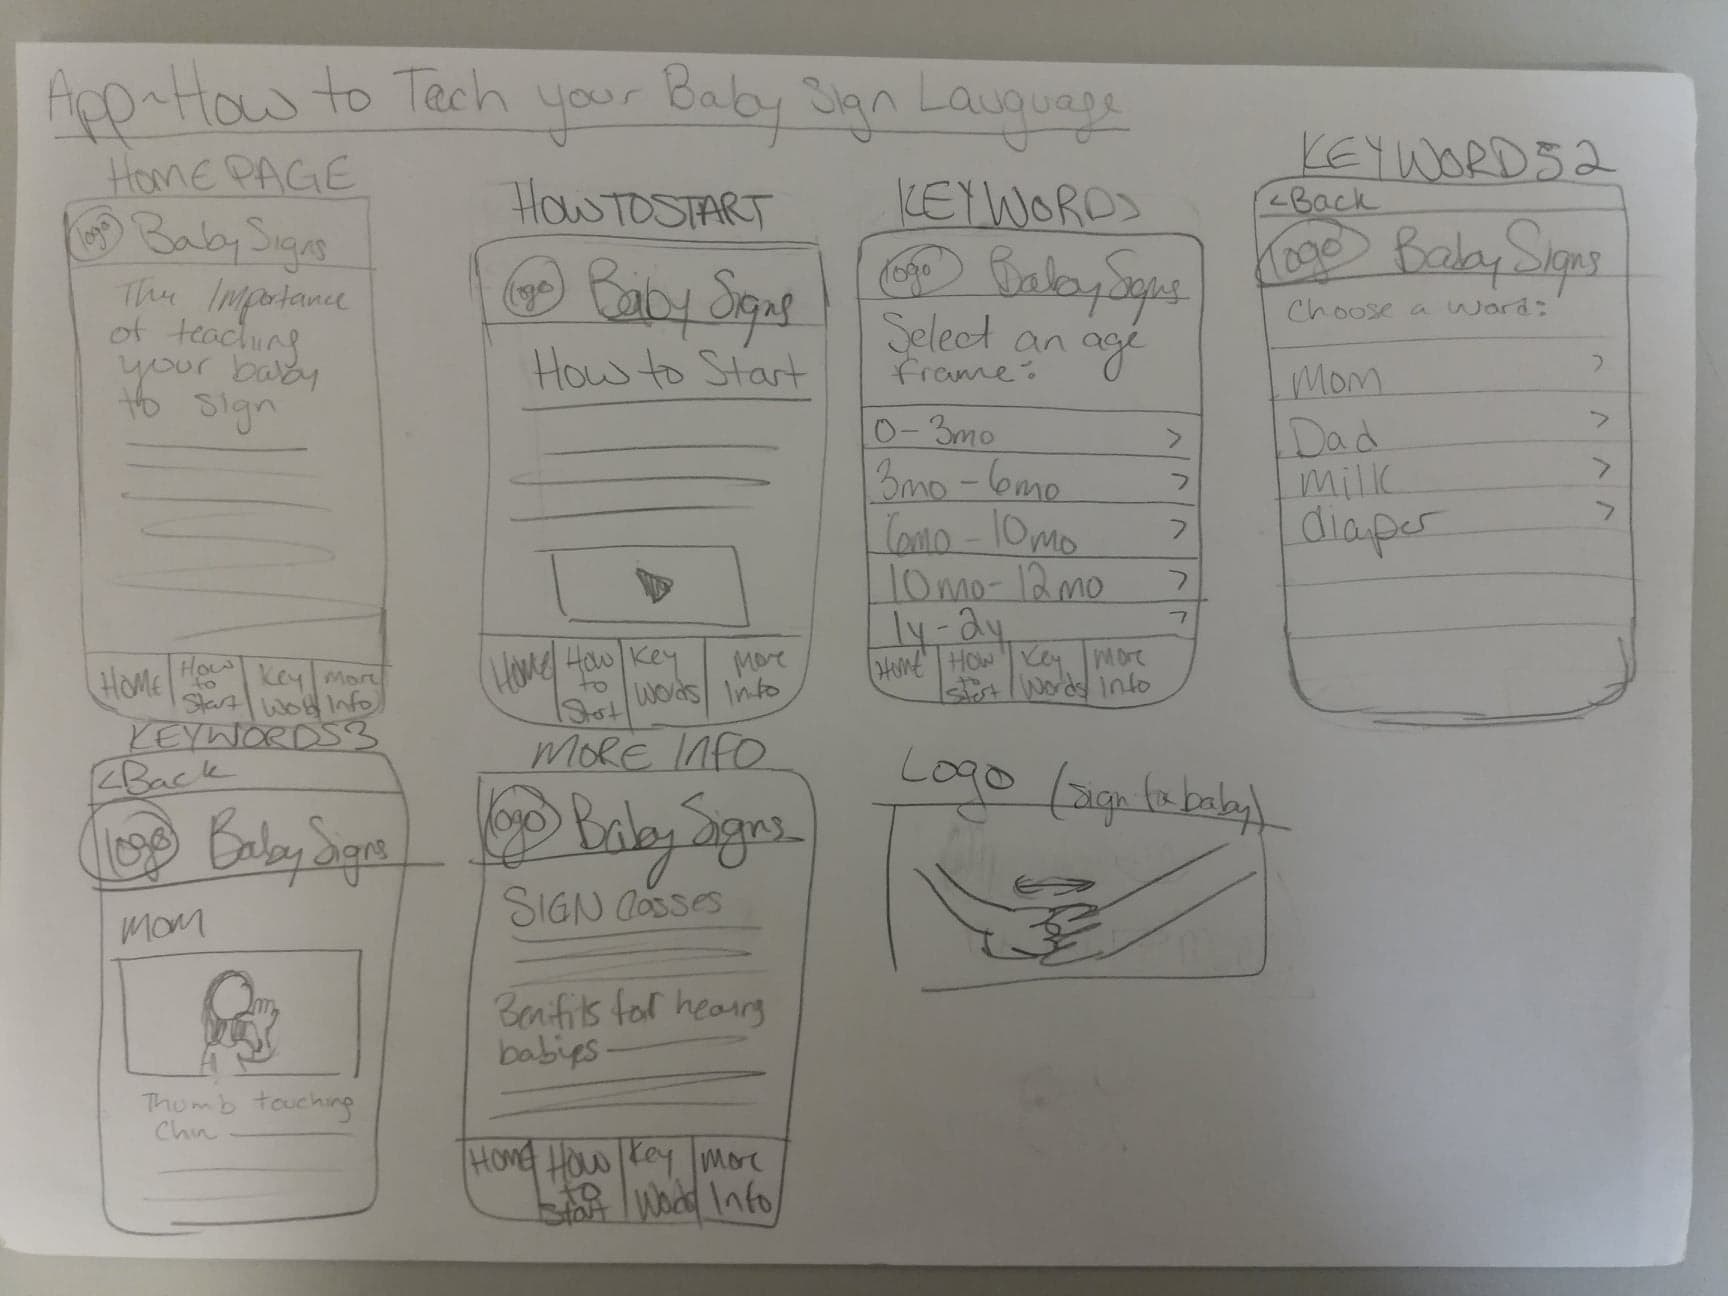 App~How to Tech your Baby Sign Lauguage
HOME PAGE
logo Baby Signs
The Importance
of teaching
your baby
to sign
Home
How
to
Start
Key
Word
More
Info
HOW TO START
logo Baby Signs
How to Start
Home
How
to
Start
Key
Words
More
Info
KEY WORDS
logo Baby Signs
Select an age
frame:
0-3mo >
3mo-6mo >
6mo-10mo >
10mo-12mo >
1y-2y >
Home
How
to
Start
Key
Words
More
Info
KEYWORDS 2
<Back
logo Baby Signs
Choose a word:
Mom >
Dad >
milk >
diaper >
KEYWORDS 3
<Back
logo Baby Signs
mom
Thumb touching
Chin
MORE INFO
logo Baby Signs
SIGN Classes
Benifits for hearing
babies
Home
How
to
Start
Key
Words
More
Info
Logo (sign for baby)